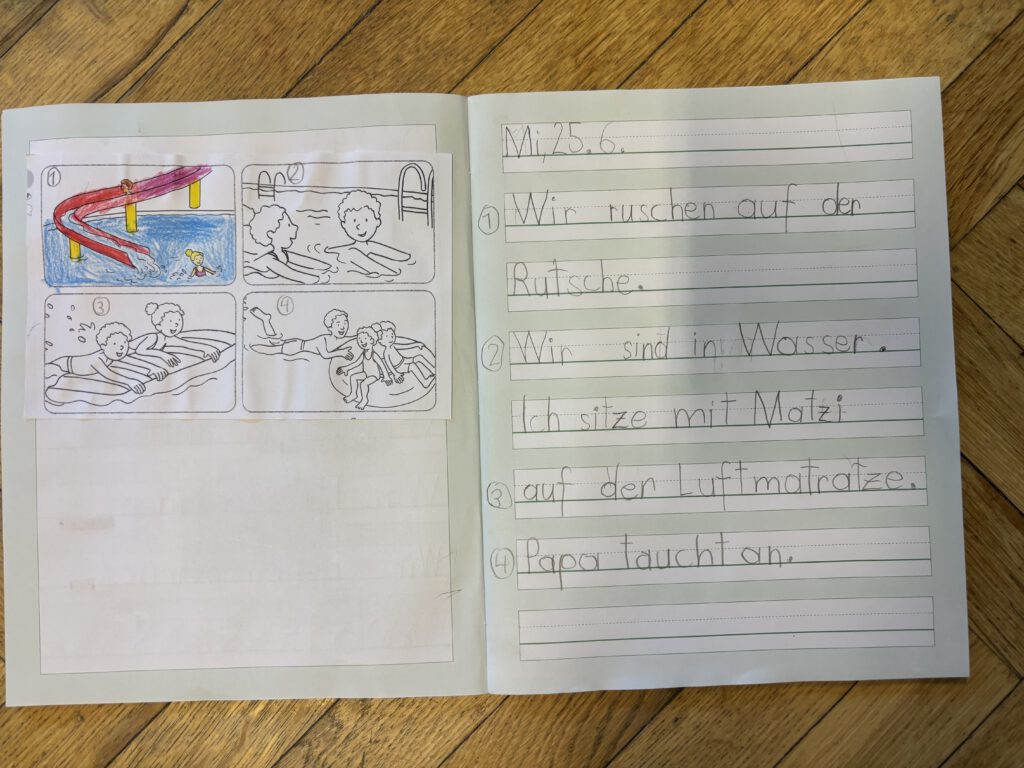 ①
②
③
④
Mi, 25. 6.
① Wir ruschen auf der
Rutsche.
② Wir sind in Wasser.
Ich sitze mit Matzi
③ auf der Luftmatratze.
④ Papa taucht an.